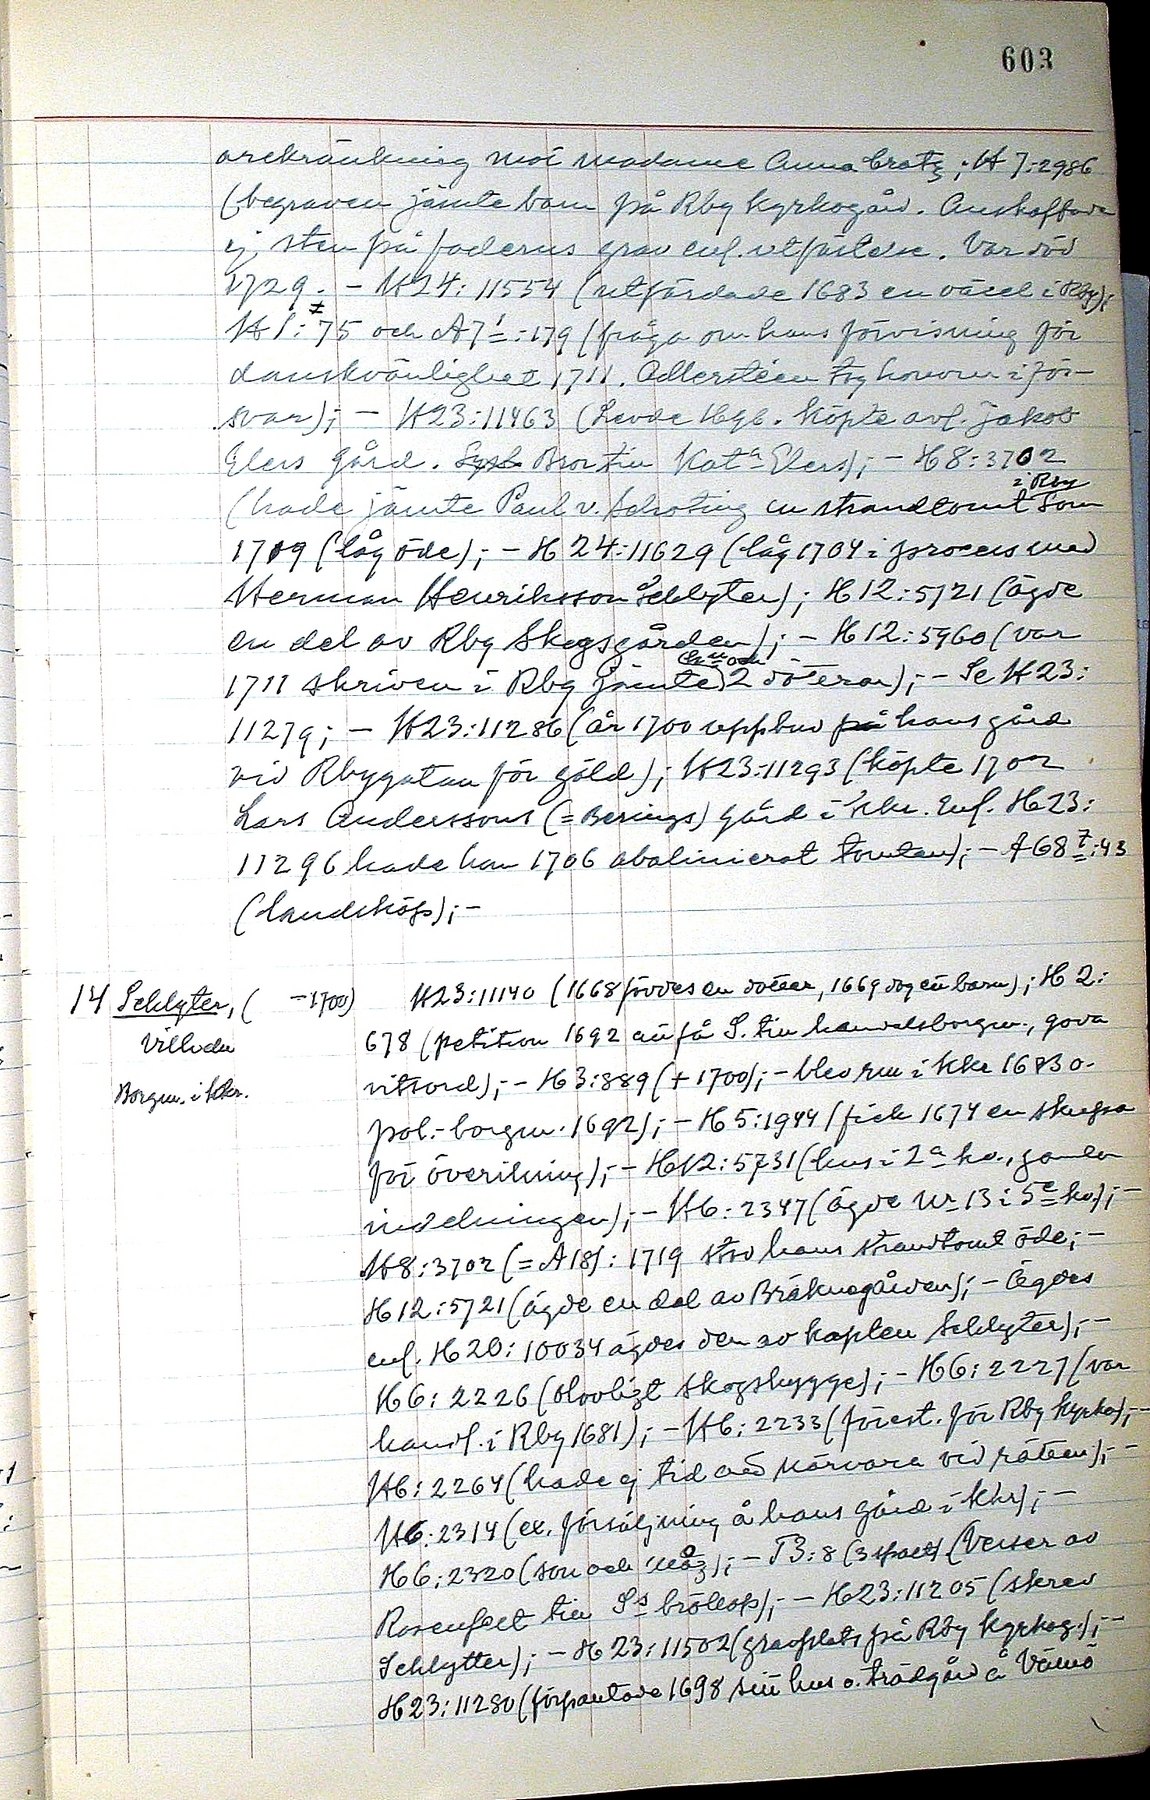 603
ärekränkning mot madame Anna Cratz; H 7:2986
(begraven jämte barn på Rby kyrkogård. Anskaffade
ej sten på faderns grav enl. utfästelse. Var död
1729. – H24:11554 (utfärdade 1683 en växel i Rby);
H1:75 och A7¹:179 (fråga om hans förvisning för
danskvänlighet 1711. Adlersteen tog honom i för-
svar); – H23:11463 (Levde 1696. Köpte avl. Jakob
Elers gård. Bror till Kat^a Elers); – H8:3702
(hade jämte Paul v. Schoting en strandtomt i Rby som
1709 låg öde); – H24:11629 (låg 1704 i process med
Herman Henriksson Schlyter); H12:5721 (ägde
en del av Rby Skogsgården); – H12:5960 (var
1711 skriven i Rby jämte 2 döttrar); – Se H23:
11279; – H23:11286 (år 1700 uppbud på hans gård
vid Rbygatan för gäld); H23:11293 (köpte 1702
Lars Anderssons (= Berings) gård i Kkr. Enl. H23:
11296 hade han 1706 abalinierat tomten); – A68⁷:43
(landsköp); –
14 Schlyter, ( –1700) H23:11140 (1668 föddes en dotter, 1669 dog ett barn); H2:
Villvder
678 (petition 1692 att få S. till handelsborgm., goda
Borgm. i Kkr.
vitsord); – H3:889 (+ 1700); – blev rm i Kkr 1683 o.
pol.-borgm. 1692); – H5:1944 (fick 1674 en skrapa
för överilning); – H12:5731 (hus i 2^a kv., gamla
indelningen); – H6:2347 (ägde Nr 13 i 5^e kv.); –
H8:3702 (= A18): 1719 stod hans strandtomt öde; –
H12:5721 (ägde en del av Bräknegården); – Ägdes
enl. H20:10034 ägdes den av kapten Schlyter); –
H6:2226 (olovligt skogshygge); – H6:2227 (var
handl. i Rby 1681); – H6:2233 (förest. för Rby kyrka); –
H6:2264 (hade ej tid att närvara vid rätten); –
H6:2314 (ex. försäljning å hans gård i Kkr); –
H6:2320 (son och måg); – T3:8 (3 spalt) (Verser av
Rosenfelt till S^s bröllop); – H23:11205 (skrev
Schlytter); – H23:11502 (gravplats på Rby kyrkog.); –
H23:11280 (förpantade 1698 sitt hus o. trädgård å Vämö